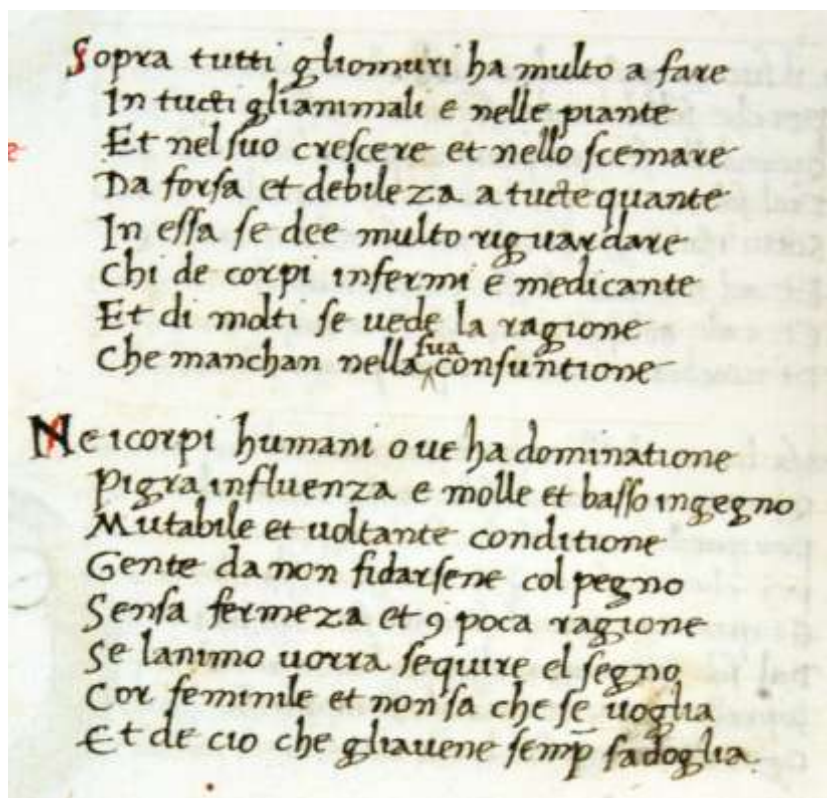 Sopra tutti gliomuri ha multo a fare
In tucti glianimali e nelle piante
Et nel suo crescere et nello scemare
Da forsa et debileza a tucte quante
In essa se dee multo riguardare
Chi de corpi infermi e medicante
Et di molti se uede la ragione
Che manchan nella sua consuntione
Ne icorpi humani oue ha dominatione
Pigra influenza e molle et basso ingegno
Mutabile et uoltante conditione
Gente da non fidarsene col pegno
Sensa fermeza et 9 poca ragione
Se lanimo uorra sequire el segno
Cor feminile et non sa che se uoglia
Et de cio che gliauene semp̄ sadoglia